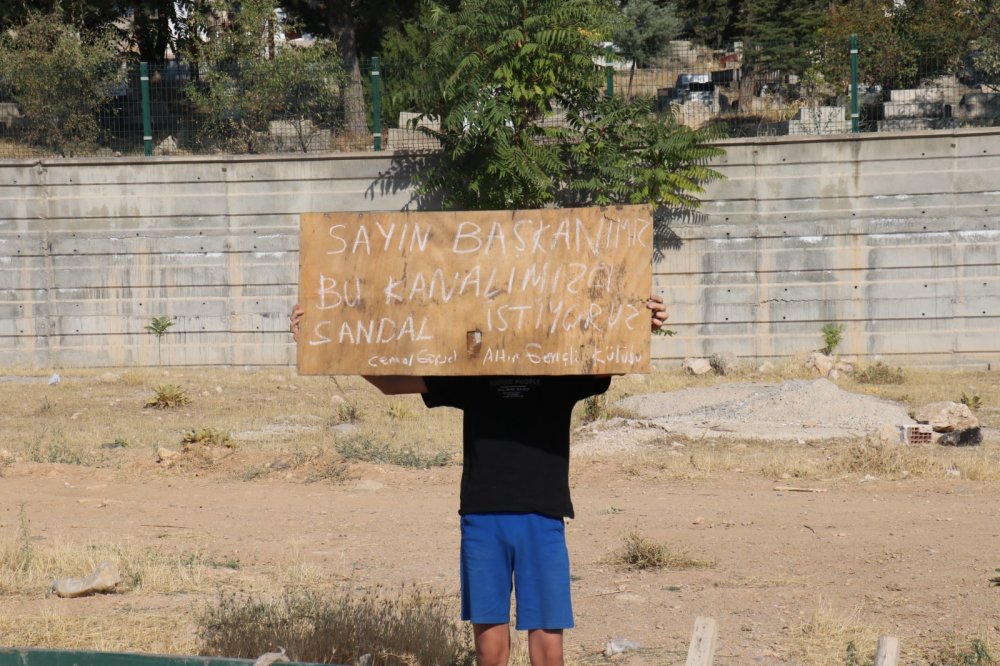 SAYIN BAŞKANIMIZ
BU KANALIMIZA
SANDAL İSTİYORUZ
Cemal Gürsel Altın Gençlik Kulübü